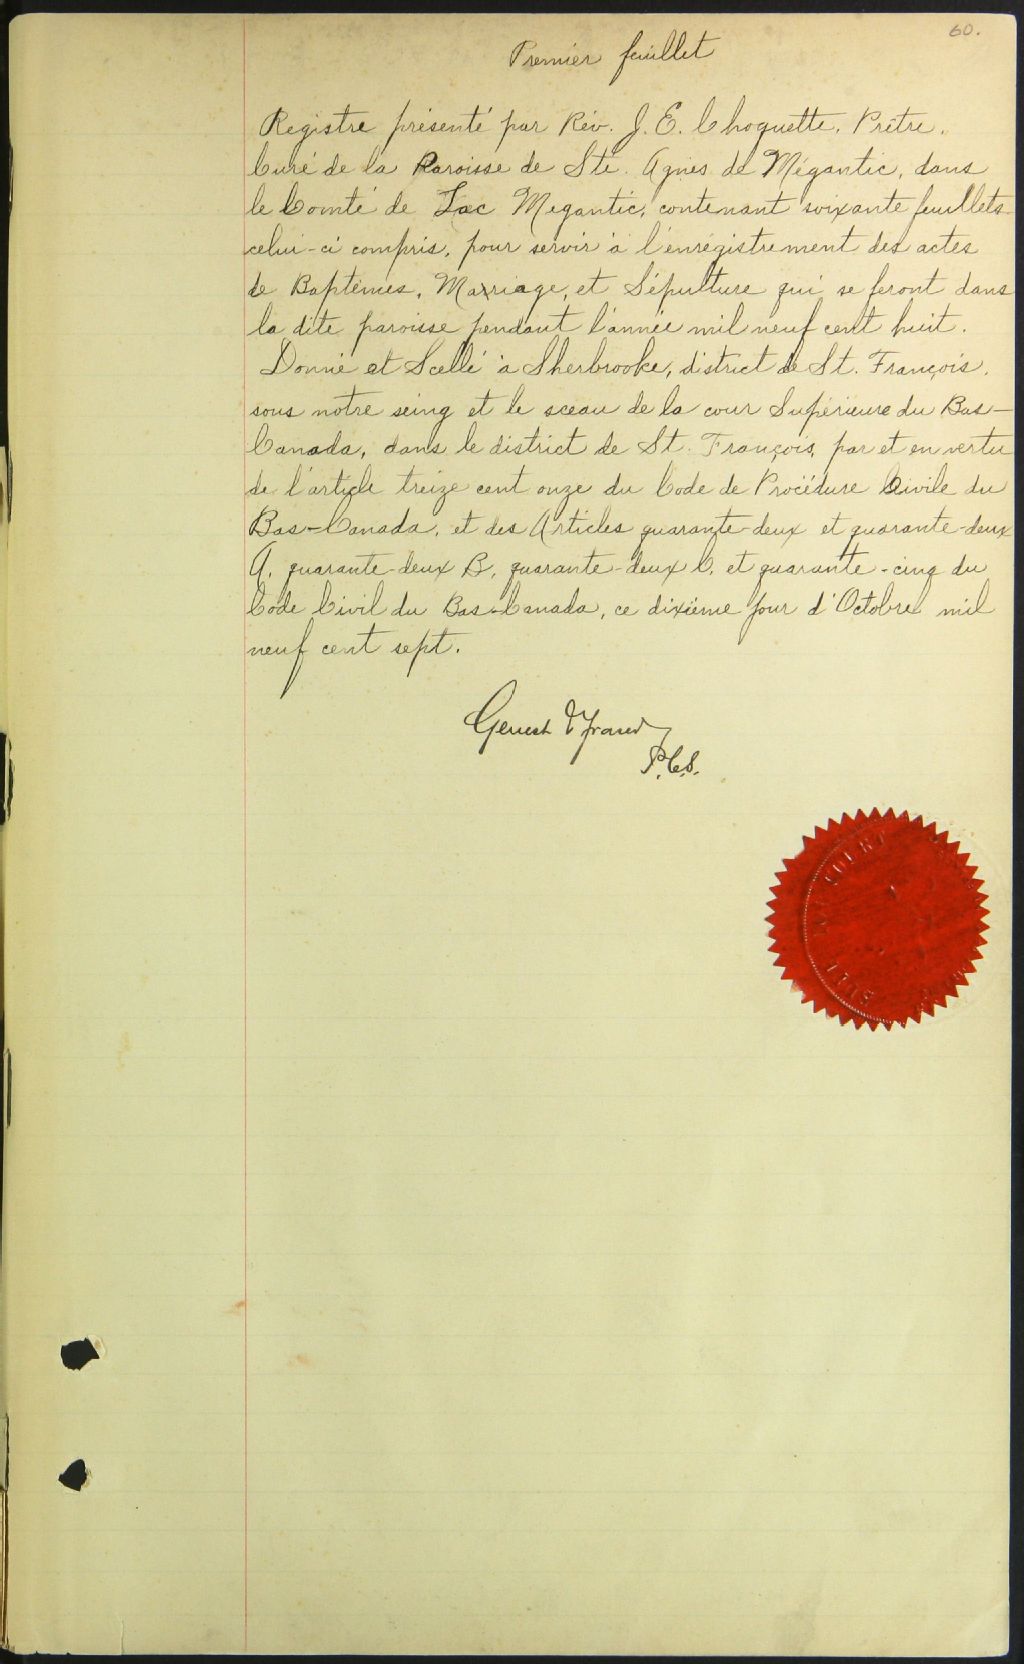 60.
Premier feuillet
Registre présenté par Rév. J. E. Choquette, Prêtre,
Curé de la Paroisse de Ste. Agnès de Mégantic, dans
le Comté de Lac Megantic, contenant soixante feuillets
celui-ci compris, pour servir à l'enrégistrement des actes
de Baptêmes, Marriage, et Sépulture qui se feront dans
la dite paroisse pendant l'année mil neuf cent huit.
Donné et Scellé à Sherbrooke, district de St. François,
sous notre seing et le sceau de la cour Supérieure du Bas-
Canada, dans le district de St. François, par et en vertu
de l'article treize cent onze du Code de Procédure Civile du
Bas-Canada, et des Articles quarante-deux et quarante-deux
A, quarante-deux B, quarante-deux C, et quarante-cinq du
Code Civil du Bas-Canada, ce dixième jour d'Octobre mil
neuf cent sept.
Genest & Fraser
P.C.S.
COURT